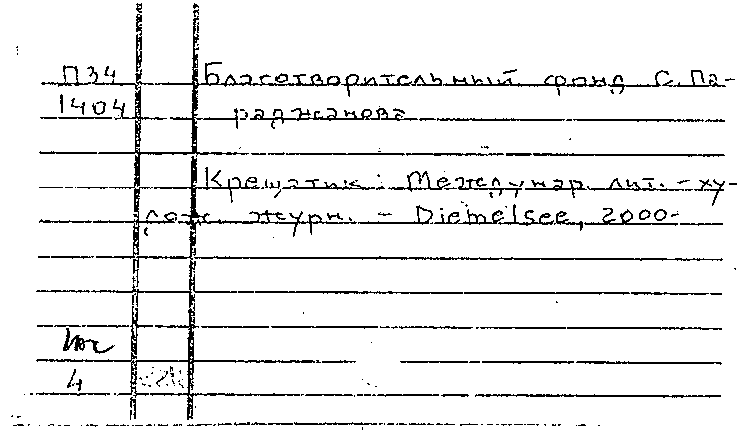 П34 Благотворительный фонд С. Па-
1404 раджанова
Крещатик: Междунар. лит.-ху-
дож. журн. - Diemelsee, 2000-
4